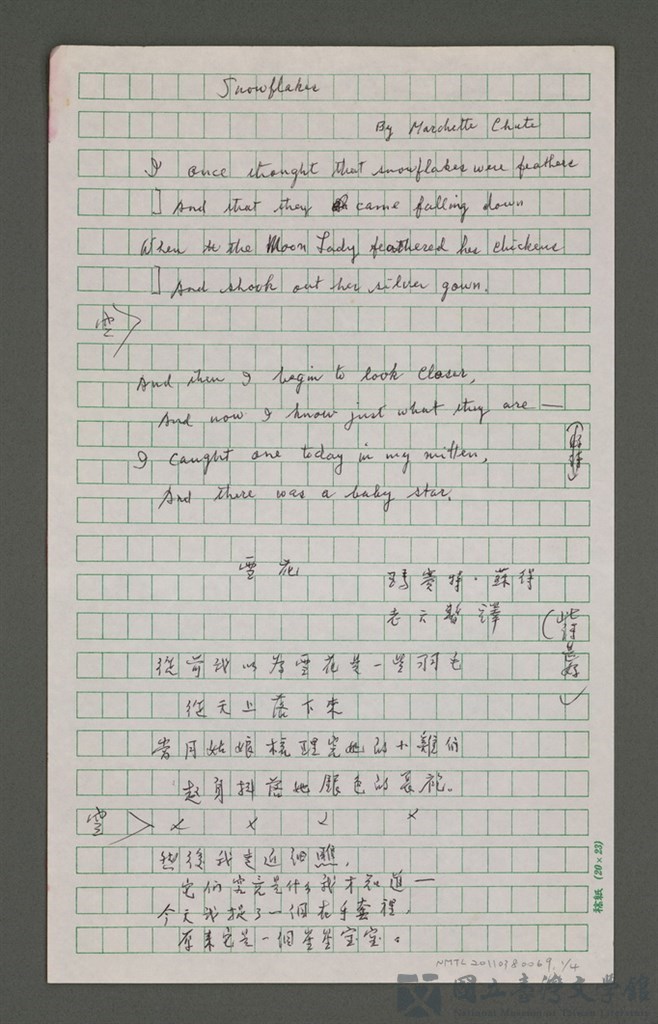 Snowflakes
By Marchette Chute
I once thought that snowflakes were feathers
And that they came falling down
When the Moon Lady feathered her chickens
And shook out her silver gown.
空
And then I begin to look closer,
And now I know just what they are —
I caught one today in my mitten,
And there was a baby star.
雪花
瑪賽特·蘇得
老六 譯
(此詩最好
從前我以為雪花是一些羽毛
從天上落下來
當月姑娘梳理完她的小雞們
起身抖落她銀色的長袍。
空
x x x x
然後我走近細瞧,
它們究竟是什么我才知道—
今天我捉了一個在手套裡,
原來它是一個星星宝宝。
稿紙 (20×23)
NMTL20110380069, 1/4
國立臺灣文學館
National Museum of Taiwan Literature